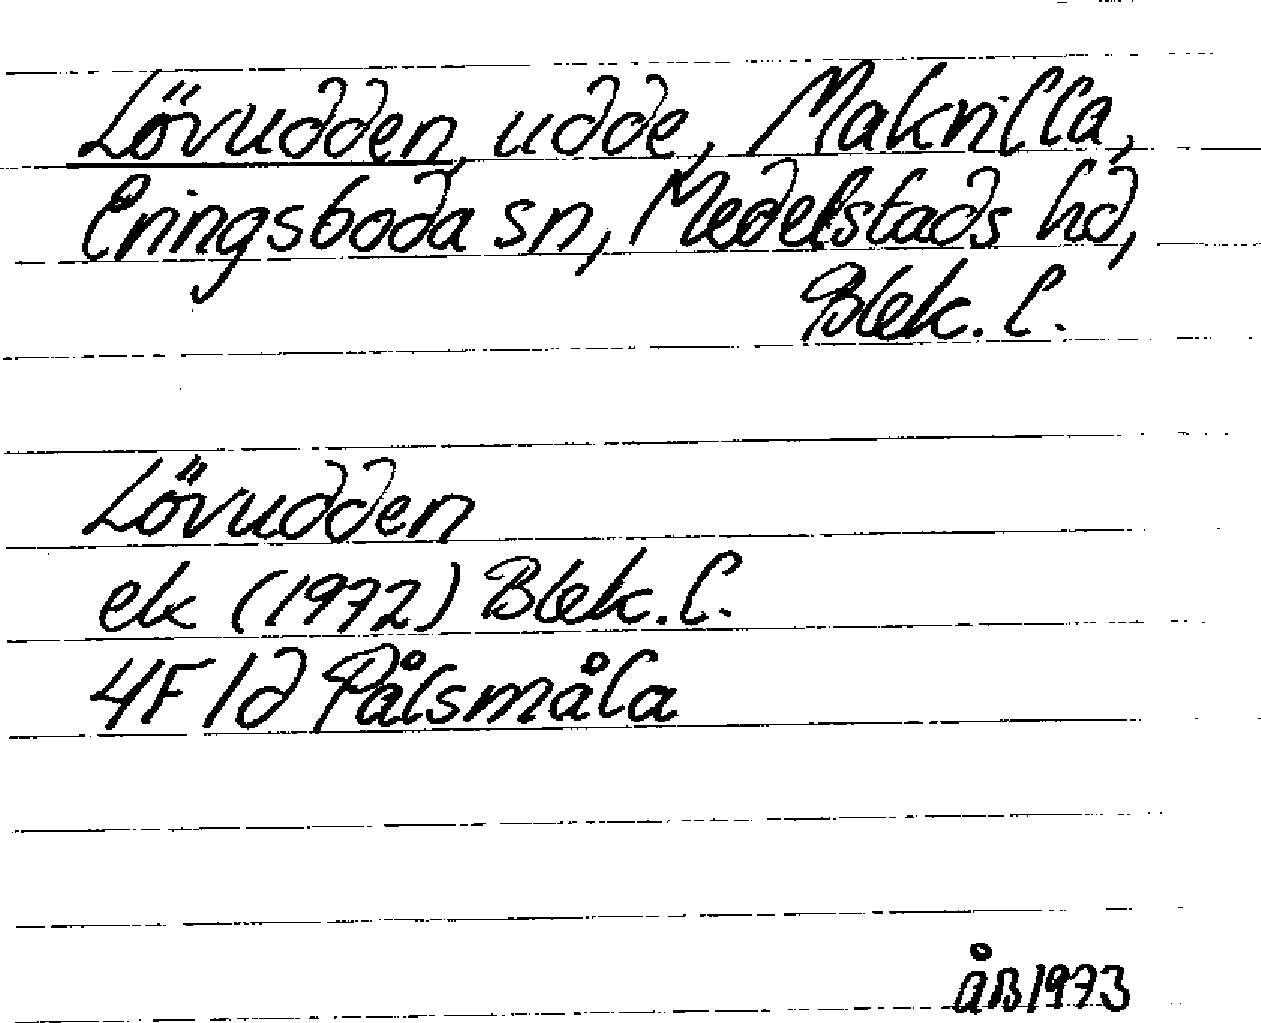 Lövudden, udde, Makrilla,
Eringsboda sn, Medelstads hd,
Blek. l.
Lövudden
ek (1972) Blek. l.
4F 1d Pålsmåla
åB 1973